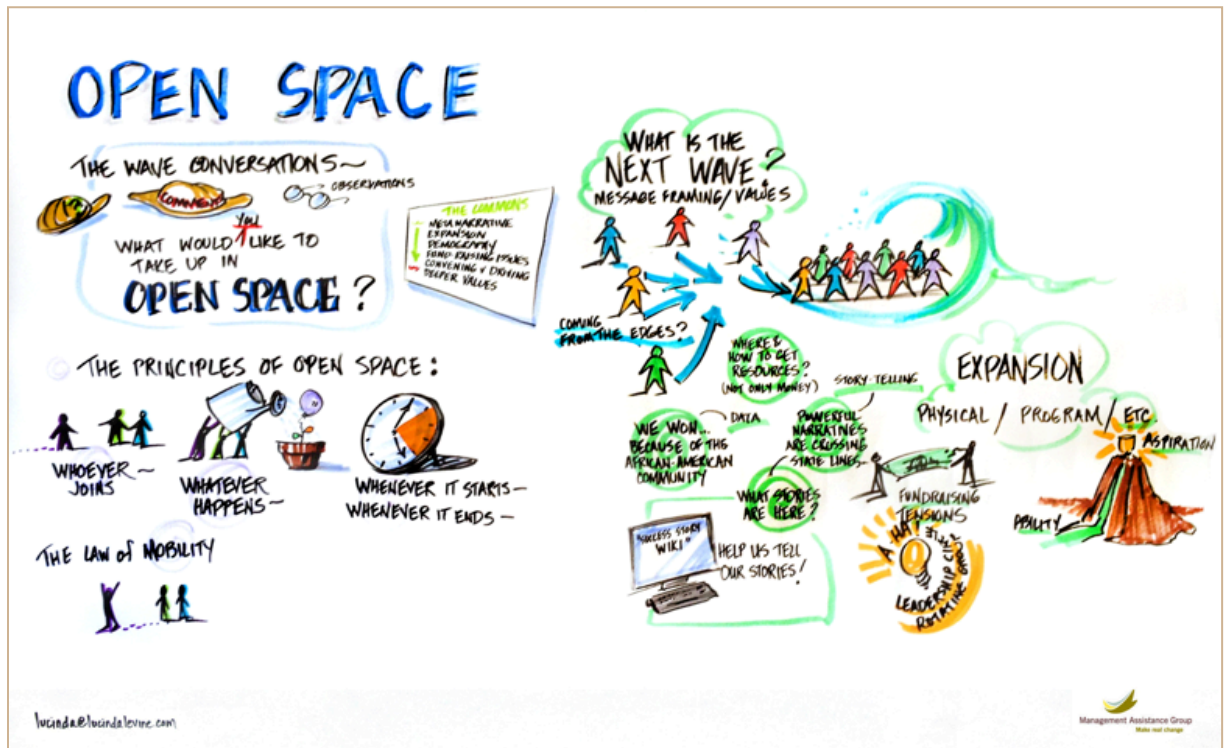 OPEN SPACE
THE WAVE CONVERSATIONS~
?
COMMENTS
OBSERVATIONS
YOU
WHAT WOULD LIKE TO
TAKE UP IN
OPEN SPACE?
THE COMMONS
META NARRATIVE
EXPANSION
DEMOGRAPHY
FUND RAISING ISSUES
CONVENING V DRIVING
DEEPER VALUES
THE PRINCIPLES OF OPEN SPACE:
WHOEVER~
JOINS
WHATEVER
HAPPENS~
WHENEVER IT STARTS—
WHENEVER IT ENDS—
THE LAW of MOBILITY
WHAT IS THE
NEXT WAVE?
MESSAGE FRAMING/VALUES
COMING
FROM THE EDGES?
WHERE &
HOW TO GET
RESOURCES?
(NOT ONLY MONEY)
DATA
WE WON...
BECAUSE OF THE
AFRICAN-AMERICAN
COMMUNITY
STORY-TELLING
POWERFUL
NARRATIVES
ARE CROSSING
STATE LINES...
WHAT STORIES
ARE HERE?
"SUCCESS STORY
WIKI"
HELP US TELL
OUR STORIES!
EXPANSION
PHYSICAL / PROGRAM / ETC.
FUNDRAISING
TENSIONS
A HA!
LEADERSHIP
ASPIRATION
ABILITY
lucinda@lucindalevine.com
Management Assistance Group
Make real change